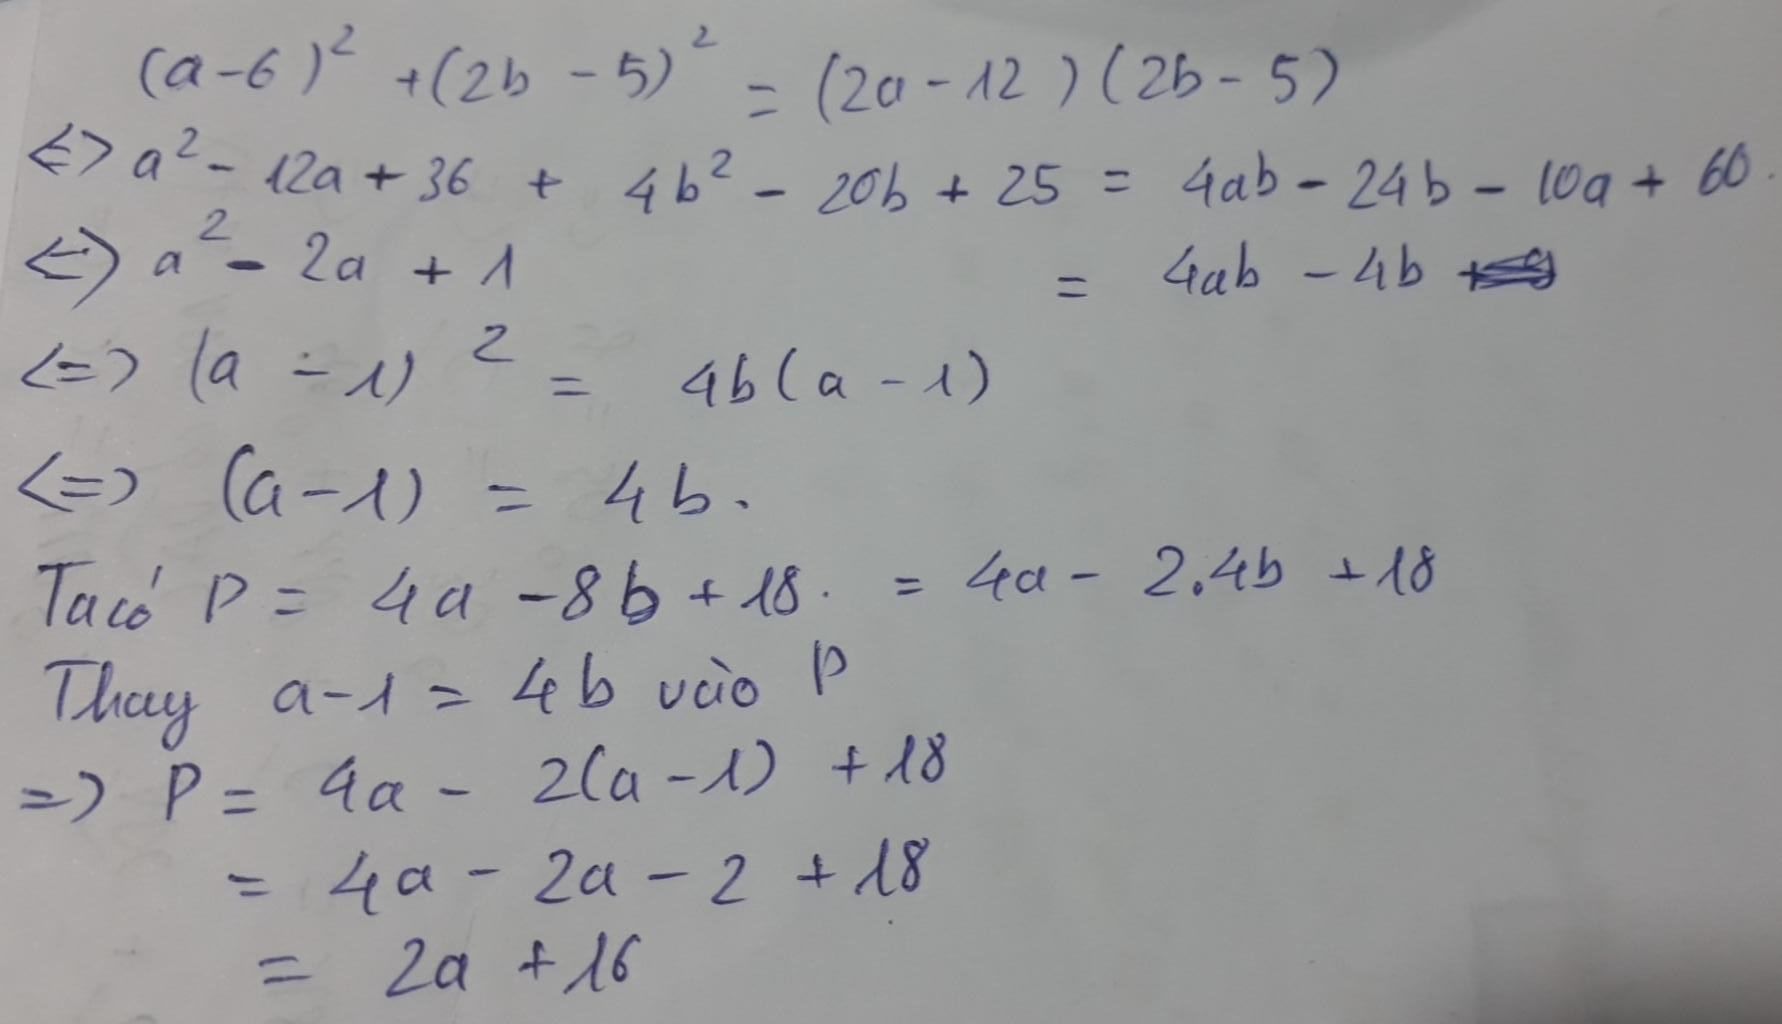 (a-6)² + (2b - 5)² = (2a - 12)(2b - 5)
<=> a² - 12a + 36 + 4b² - 20b + 25 = 4ab - 24b - 10a + 60.
<=> a² - 2a + 1 = 4ab - 4b
<=> (a - 1)² = 4b(a - 1)
<=> (a - 1) = 4b.
Ta có P = 4a - 8b + 18. = 4a - 2.4b + 18
Thay a - 1 = 4b vào P
=> P = 4a - 2(a - 1) + 18
= 4a - 2a - 2 + 18
= 2a + 16